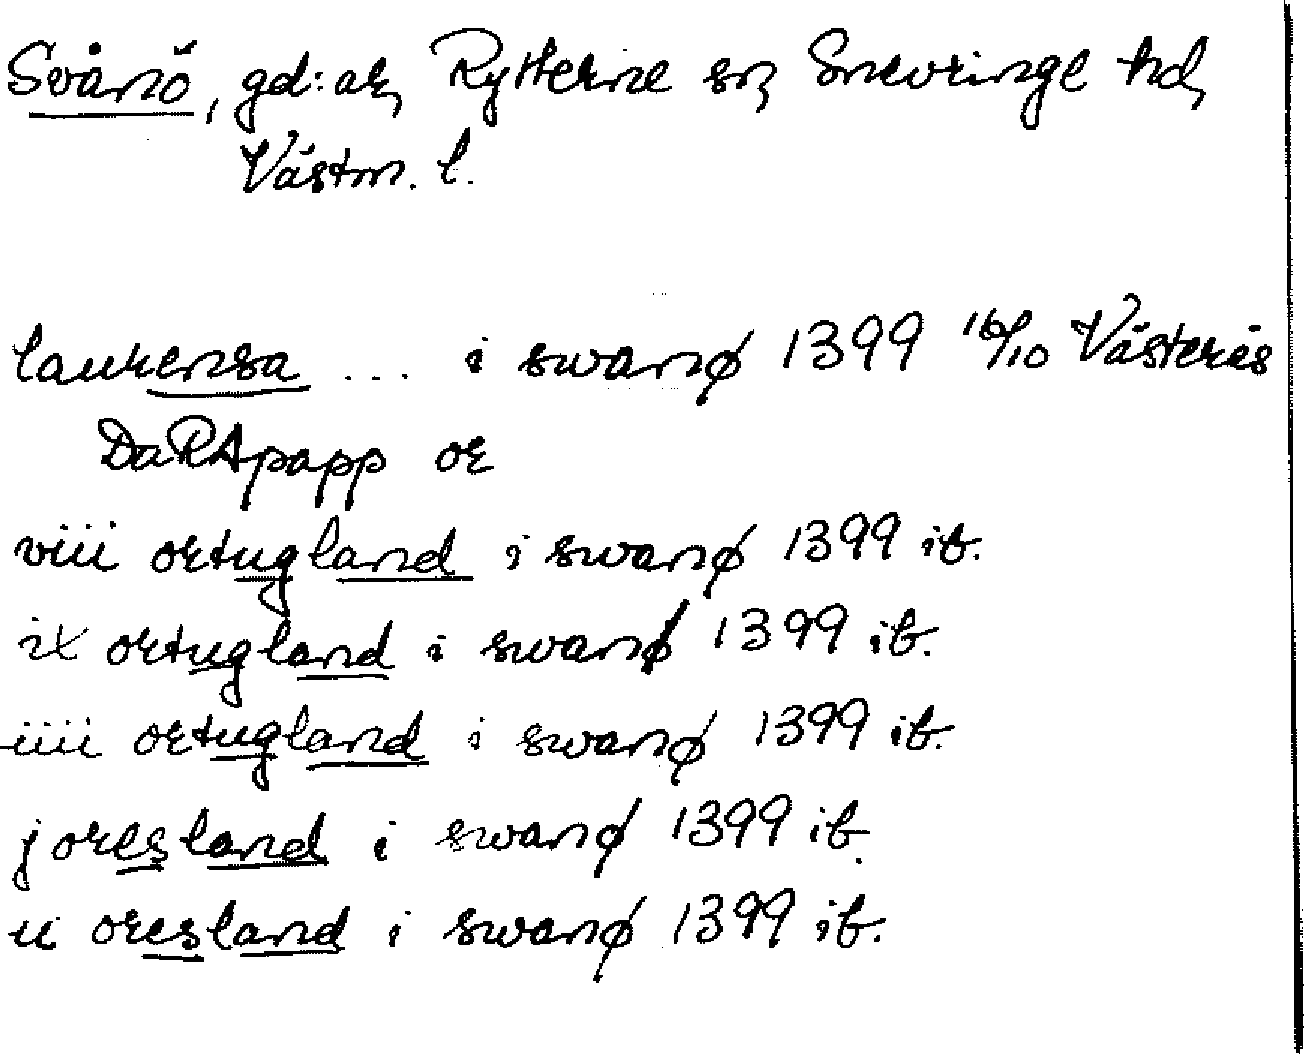 Svånö, gd:ar, Rytterne sn, Snevringe hd,
Västm. l.
laurensa ... i swanø 1399 16/10 Västerås
DaRApapp or
viii ortugland i swanø 1399 ib.
ix ortugland i swanø 1399 ib.
iiii ortugland i swanø 1399 ib.
j oresland i swanø 1399 ib.
ii oresland i swanø 1399 ib.